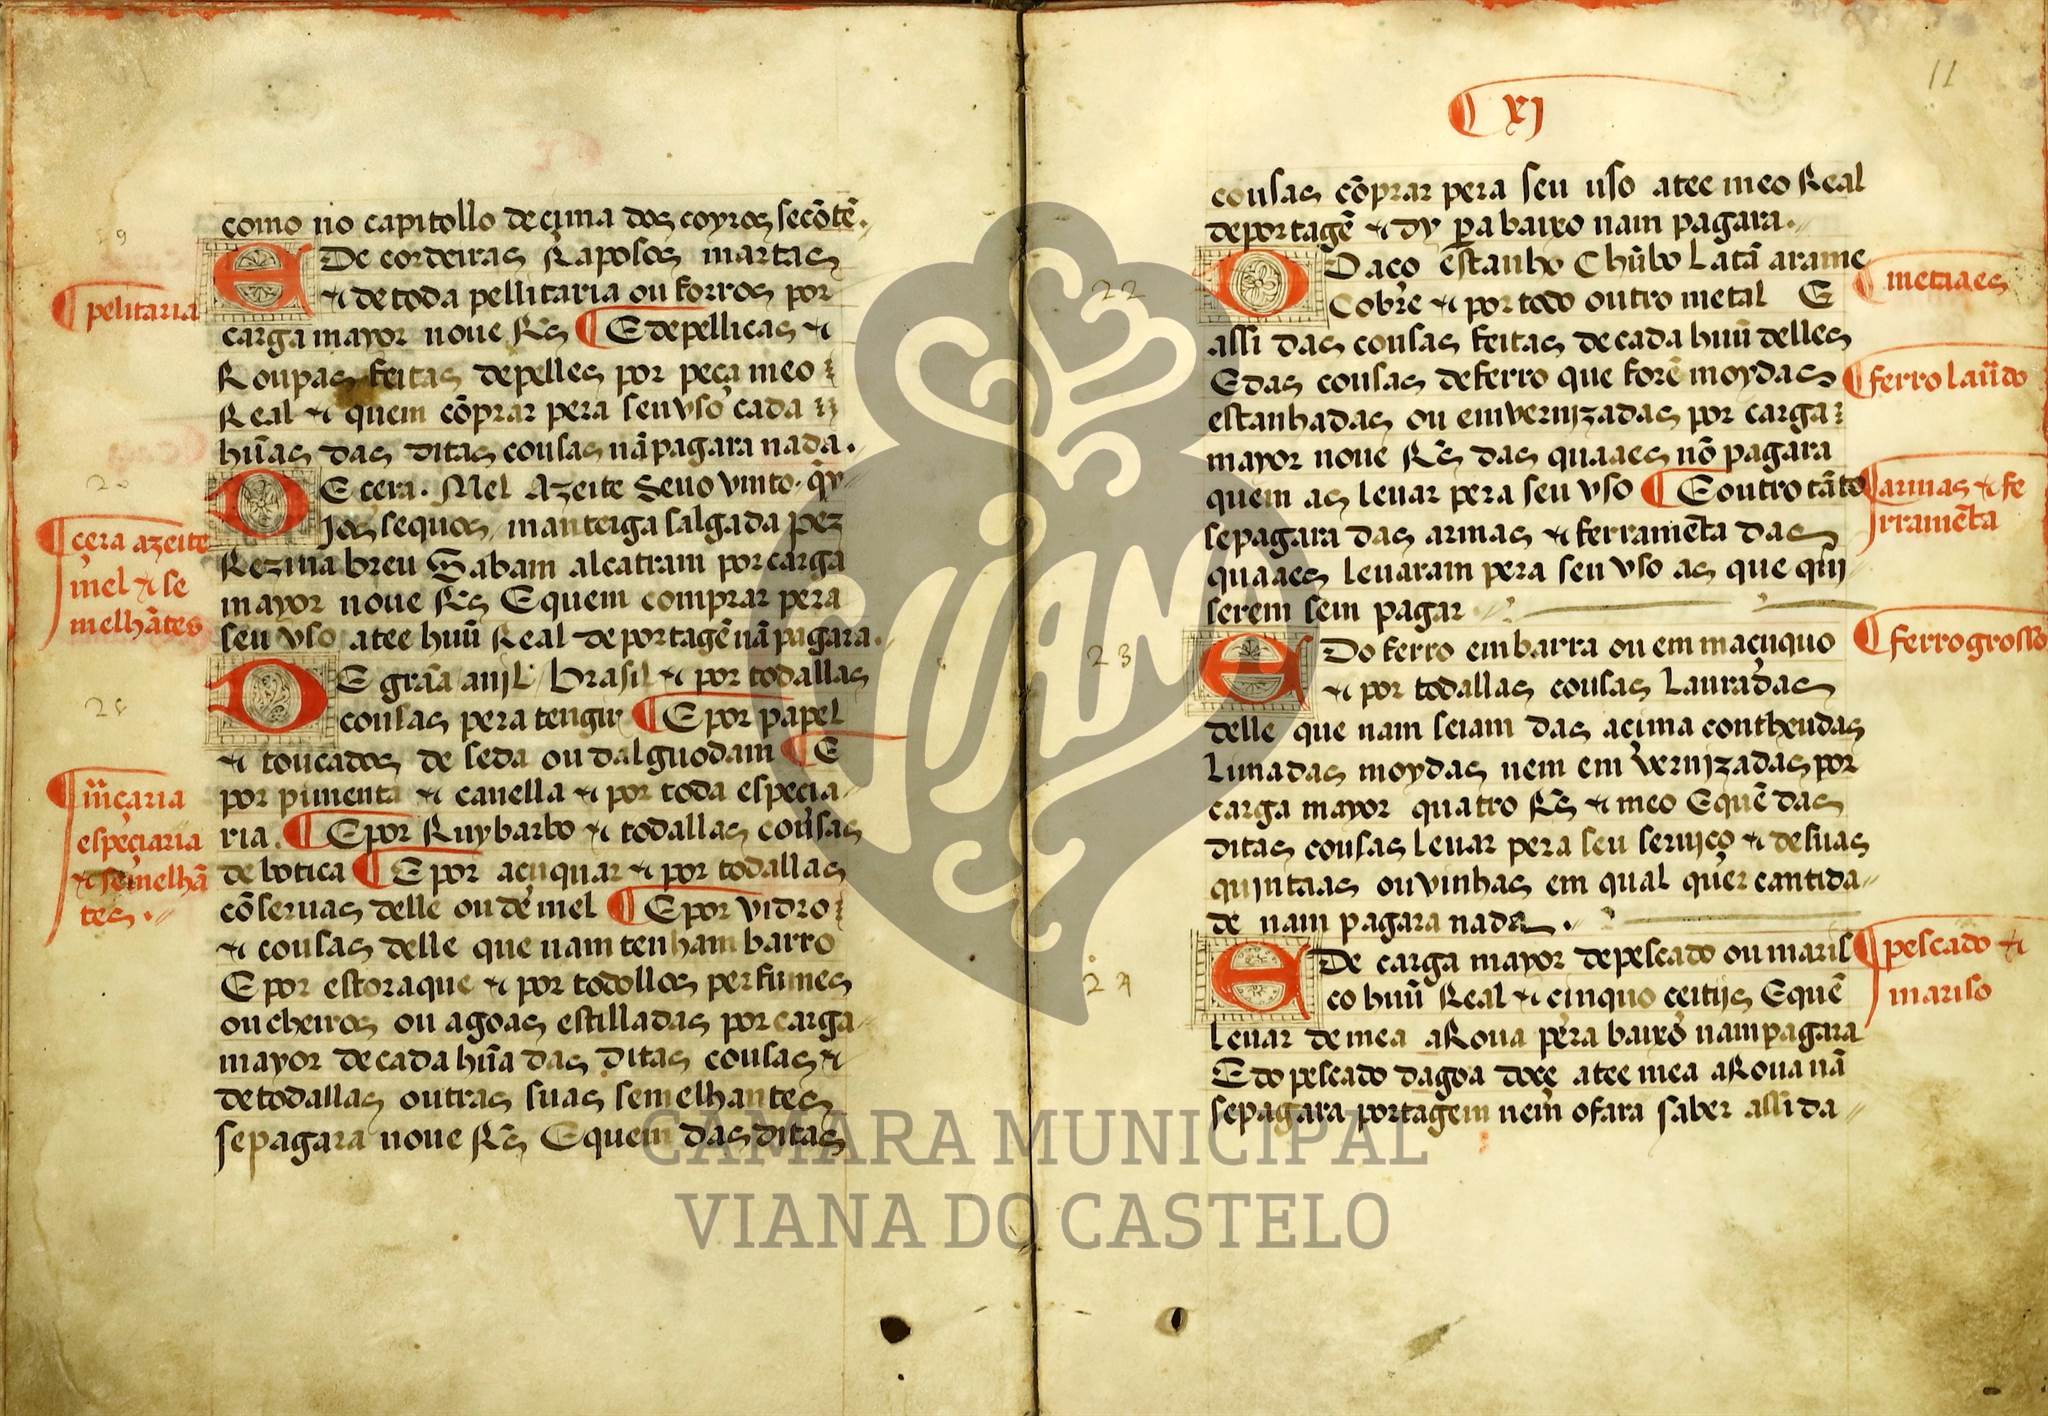 como no capitollo de cima dos coyros se cõtẽ.
E De cordeiras Raposos martas
pelitaria
& de toda pellitaria ou forros por
carga mayor noue Rs ¶ E de pellicas &
Roupas feitas de pelles por peca meo
Real & quem cõprar pera seu vso cada
hũas das ditas cousas nã pagara nada.
20
DE cera. Mel Azeite Seuo vnto. q̃y
jos sequos / manteiga salgada pez
cera azeite
mel & se
melhãtes
Rezina breu Sabam alcatram por carga
mayor noue Rs E quem comprar pera
seu vso atee huũ Real de portagẽ nã pagara.
DE grãa anjl / brasil & por todallas
cousas pera tengir ¶ E por papel
& toucados de seda ou dalguodam ¶ E
m̃caria
especiaria
& semelhã
tes.
por pimenta & canella & por toda especia
ria. ¶ E por Ruybarbo & todallas cousas
de botica ¶ E por acuquar & por todallas
cõseruas delle ou de mel ¶ E por vidro
& cousas delle que nam tenham barro
E por estoraque & por todollos perfumes
ou cheiros ou agoas estilladas por carga
mayor de cada hũa das ditas cousas &
de todallas outras suas semelhantes
se pagara noue Rs E quem das ditas
11
¶ xj
cousas cõprar pera seu uso atee meo Real
de portagẽ & dy pa baixo nam pagara.
22
DO aco estanho Chũbo Latã arame
¶ metaaes
Cobre & por todo outro metal E
assi das cousas feitas de cada huũ delles
E das cousas de ferro que forẽ moydas
¶ ferro laũdo
estanhadas ou emvernjzadas por carga
mayor noue Rs das quaaes nõ pagara
quem as leuar pera seu vso ¶ E outro tãto
armas & fe
rramẽta
se pagara das armas & ferramẽta das
quaaes leuaram pera seu vso as que qui
serem sem pagar
23
E Do ferro em barra ou em macuquo
¶ ferro grosso
& por todallas cousas Lauradas
delle que nam seiam das acima contheudas
Limadas moydas nem em vernjzadas por
carga mayor quatro Rs & meo E quẽ das
ditas cousas leuar pera seu serujco & de suas
quintaas ou vinhas em qual quer cantida
de nam pagara nada.
24
E De carga mayor de pescado ou maris
¶ pescado &
mariso
co huũ Real & cinquo ceitijs E quẽ
leuar de mea aRoua pera baixo nam pagara
E do pescado dagoa doce atee mea aRoua nã
se pagara portagem nem o fara saber assi da
CÂMARA MUNICIPAL
VIANA DO CASTELO